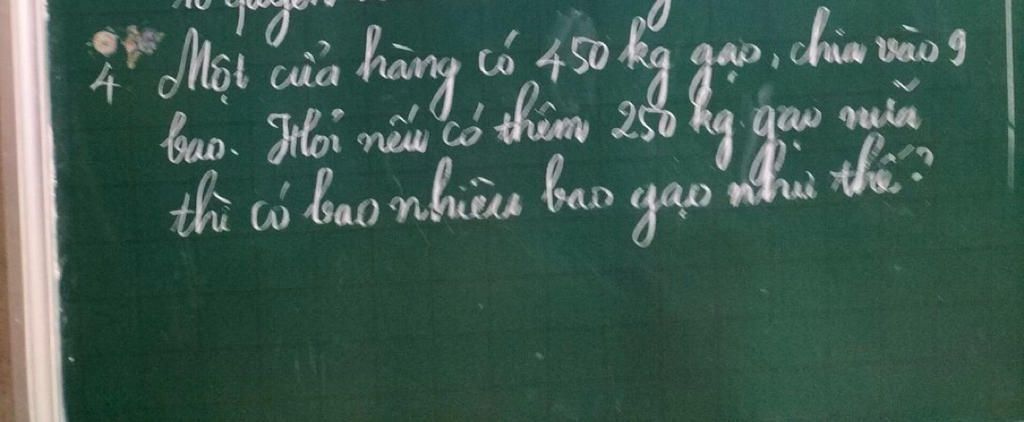 10 quyển
4 Một cửa hàng có 450 kg gạo, chia vào 9
bao. Hỏi nếu có thêm 250 kg gạo nữa
thì có bao nhiêu bao gạo như thế?